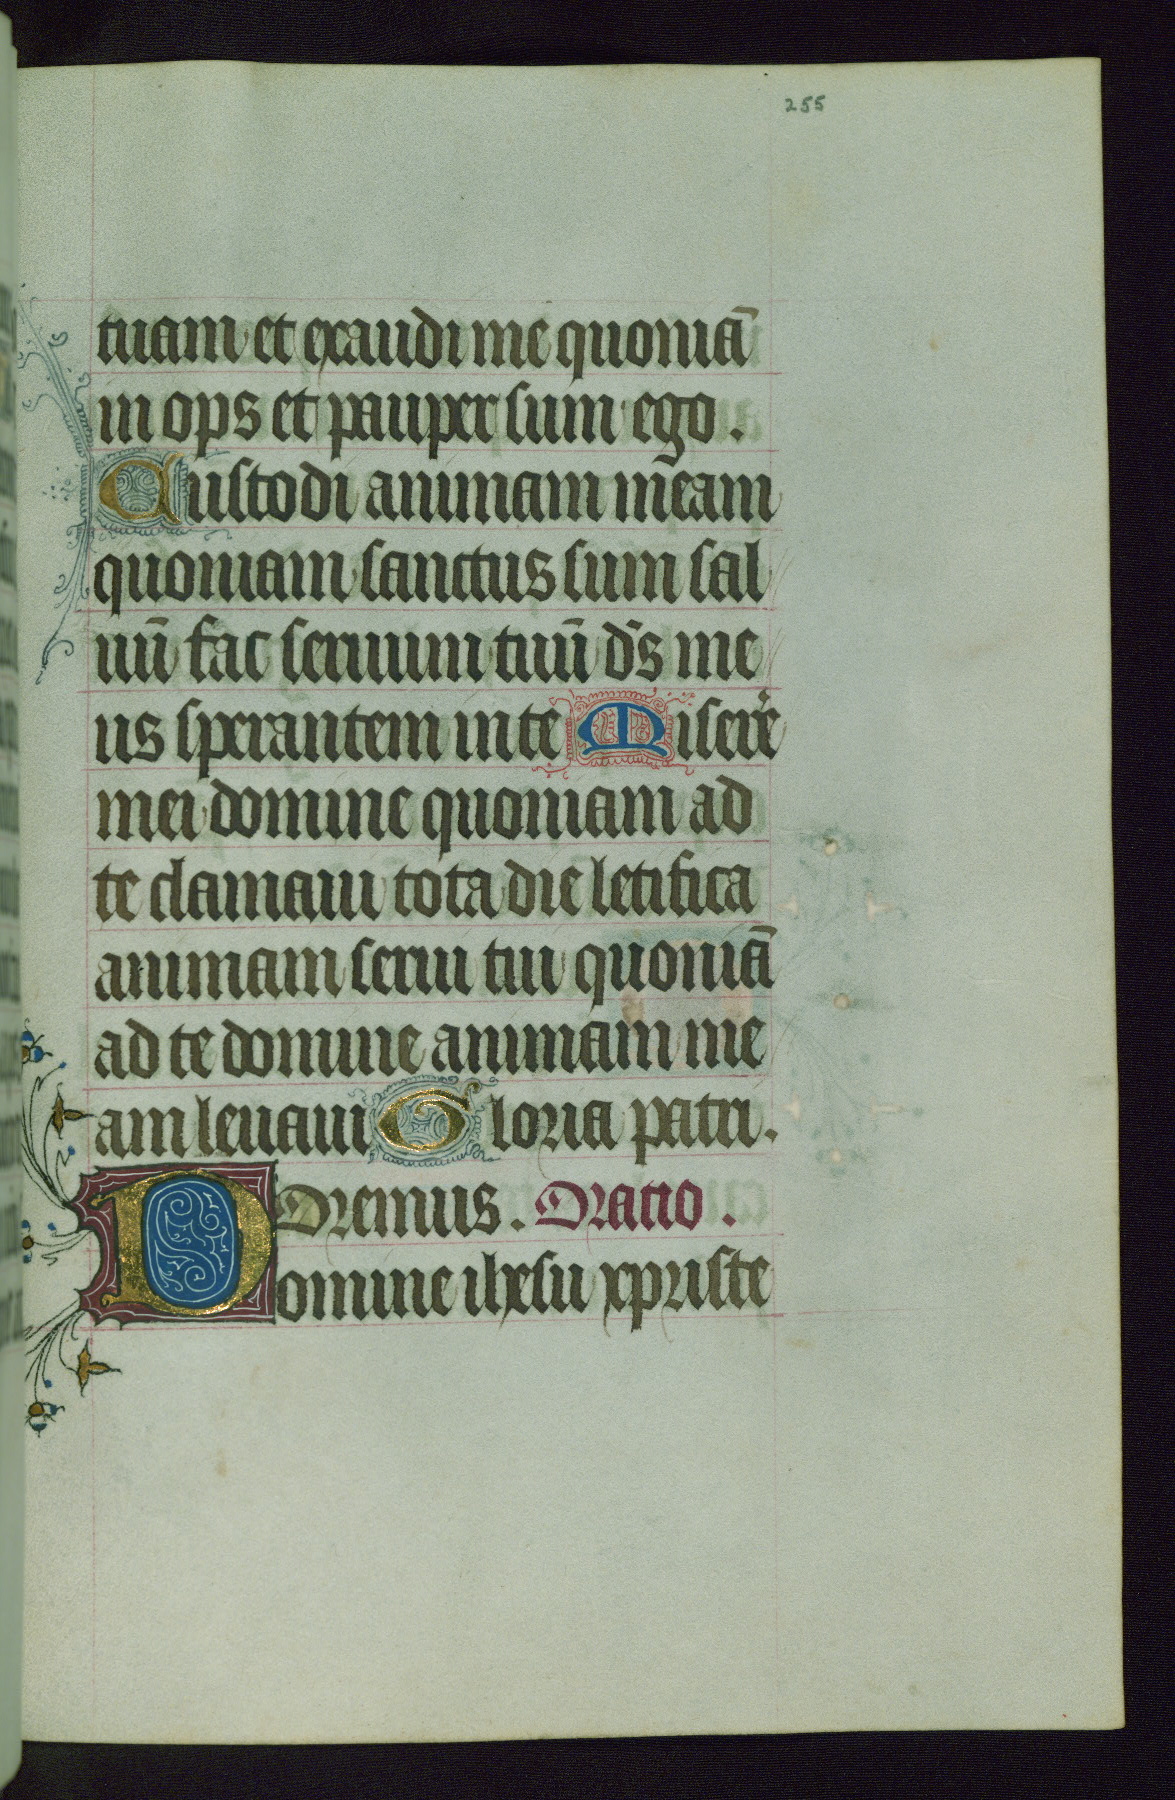 255
tuam et exaudi me quoniā
in ops et pauper sum ego.
Custodi animam meam
quoniam sanctus sum sal
uū fac seruum tuū ds̄ me
us sperantem in te Misere
mei domine quoniam ad
te clamaui tota die letifica
animam serui tui quoniā
ad te domine animam me
am leuaui Gloria patri.
Oremus. Oratio.
Domine ihesu xpriste